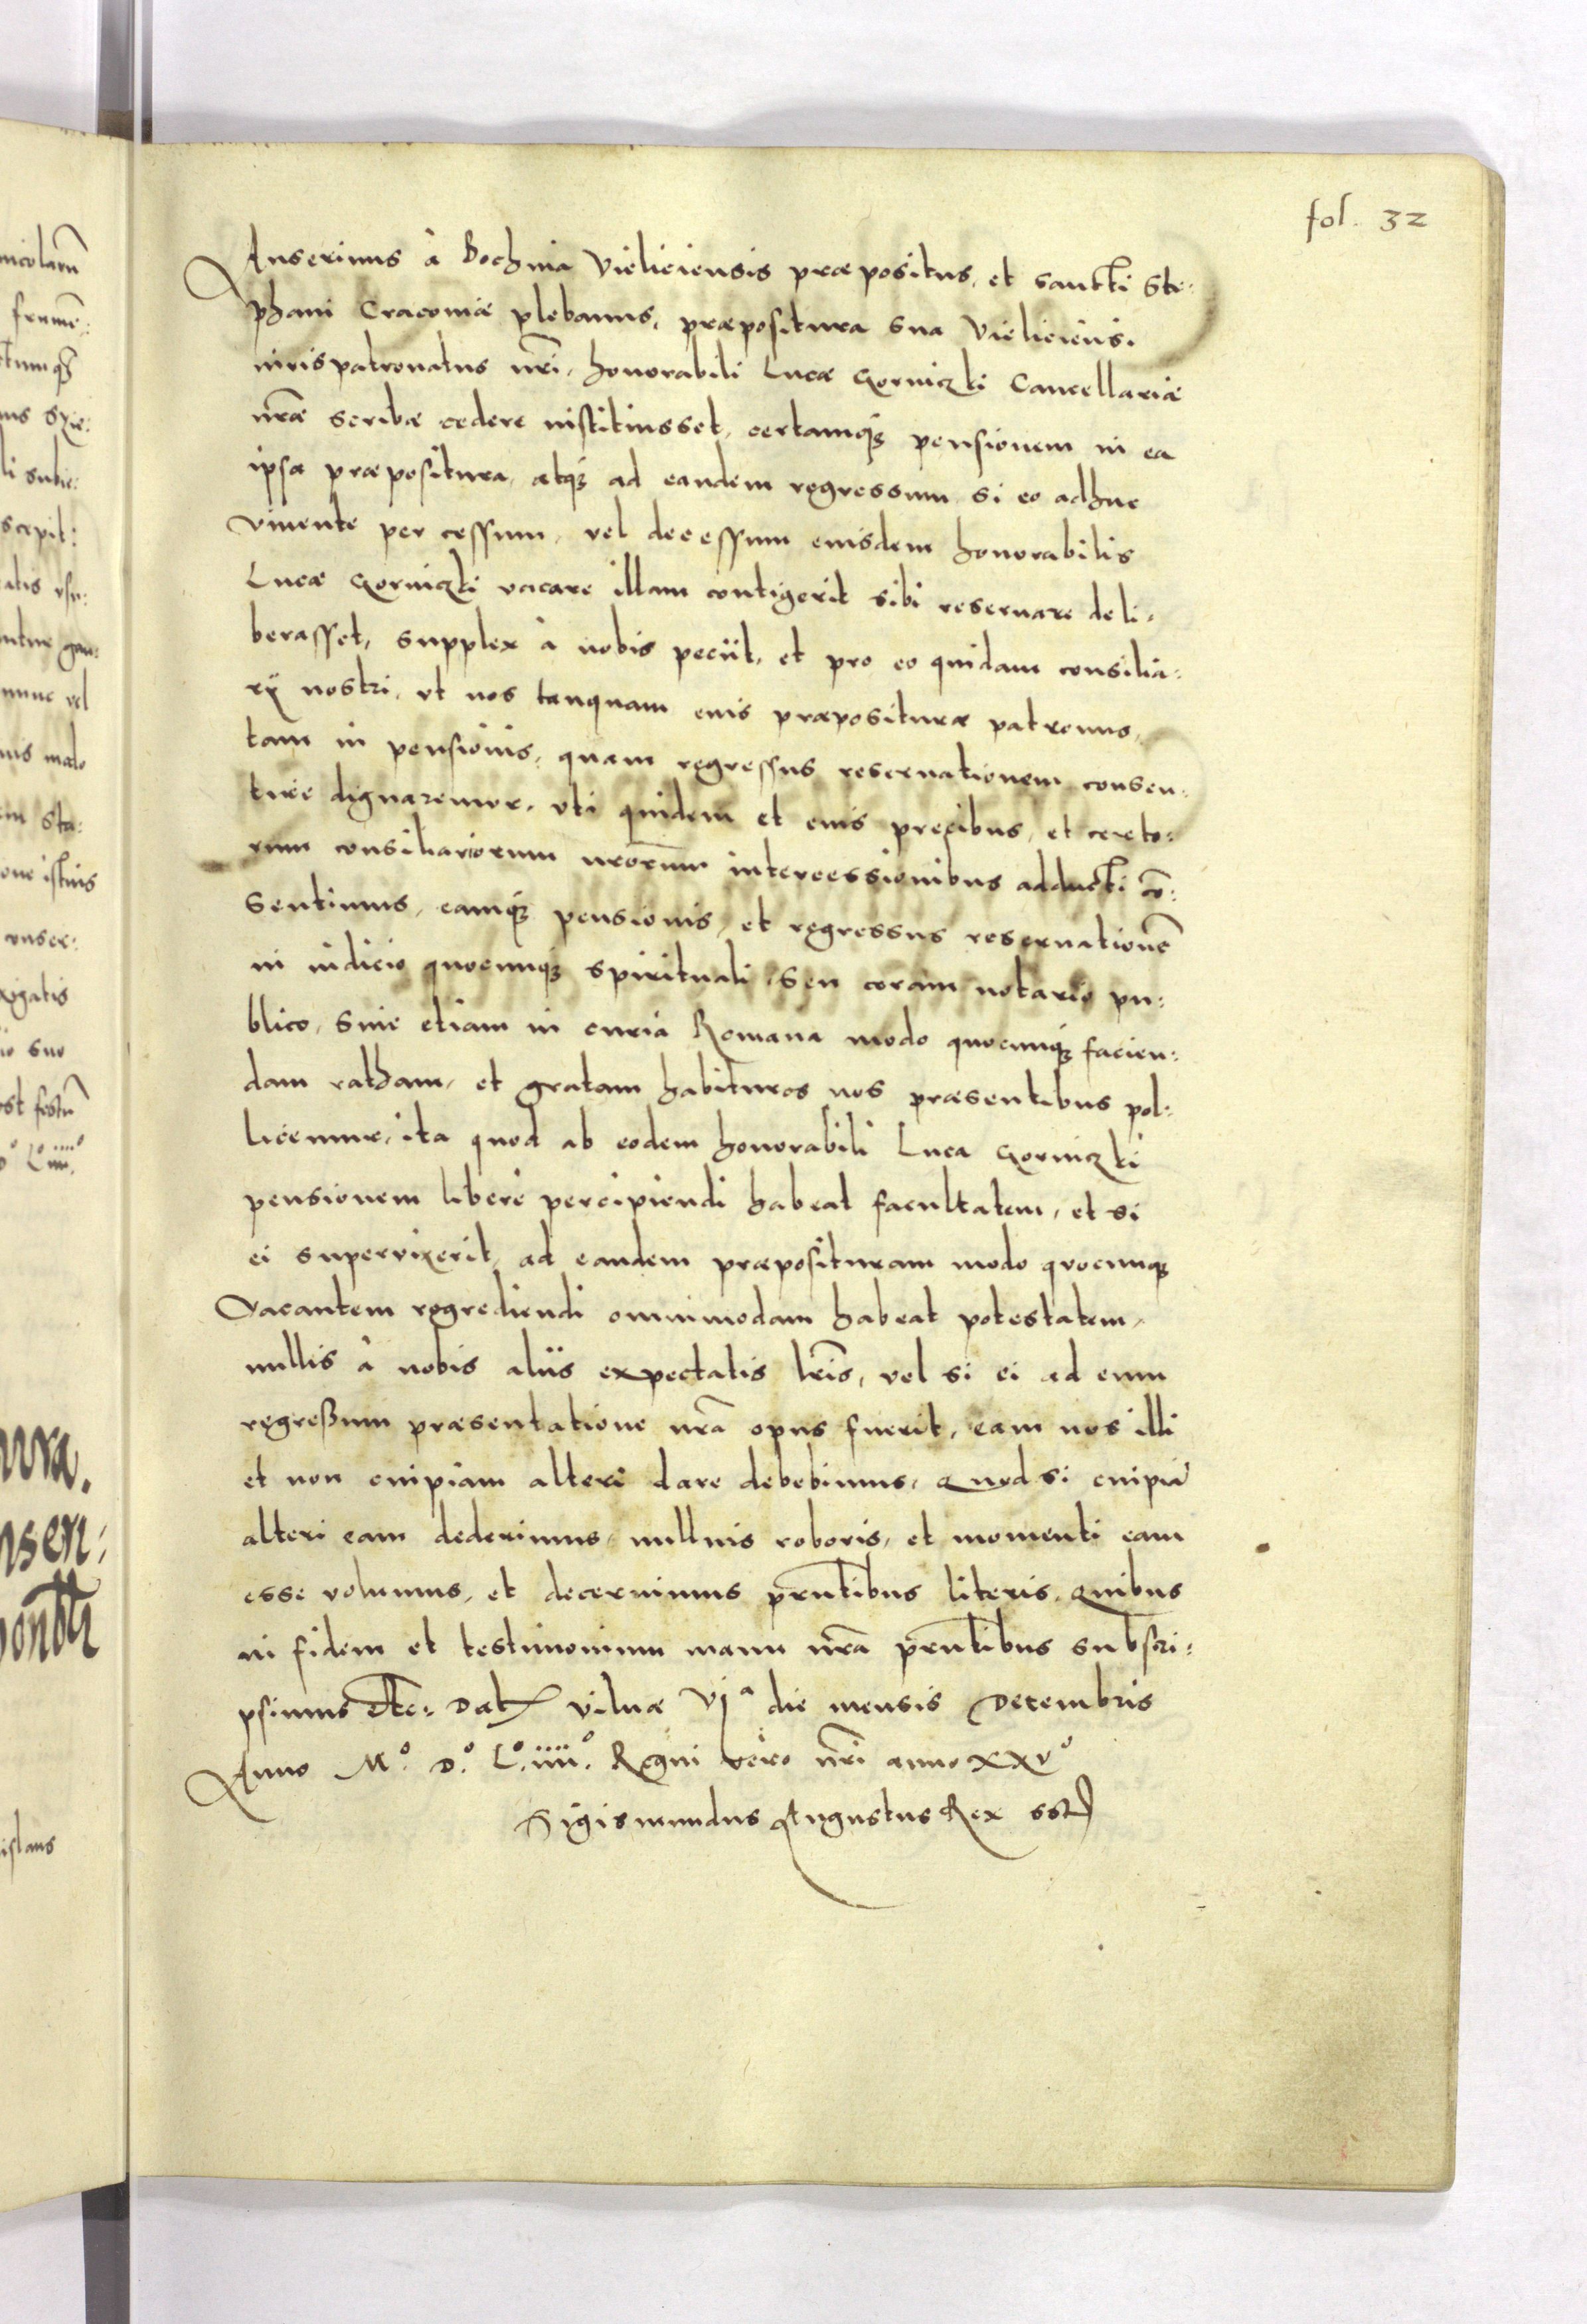 fol. 32
Anserinus à Bochnia Vielieiensis præpositus, et sancti Ste:
phani Cracoviæ plebanus, præpositura sua Vielieiensi.
iuris patronatus nr̃i, honorabili Lucæ Gorniczki Cancellariæ
nr̃æ scribæ cedere instituisset, certamq́ʒ pensionem in ea
ipsa præpositura, atq́ʒ ad eandem regressum si eo adhuc
vivente per cessum, vel decessum eiusdem honorabilis
Lucæ Gorniczki vacare illam contigerit sibi reservare deli:
berasset, supplex à nobis peciit, et pro eo quidam consilia:
rÿ nostri, ut nos tanquam eius præposituræ patronus,
tam in pensionis, quam regressus reservationem consen:
tire dignaremur, uti quidem et eius precibus, et certo:
rum consiliariorum nrorum intercessionibus adducti cõ:
sentimus, eamq́ʒ pensionis, et regressus reservationẽ
in iudicio quocunqʒ spirituali, seu coram notario pu:
blico, sive etiam in curia Romana modo quocunqʒ facien:
dam ratham, et gratam habituros nos præsentibus pol:
licemur, ita quod ab eodem honorabili Luca Gorniczki
pensionem libere percipiendi habeat facultatem, et si
ei supervixerit, ad eandem præposituram modo quocunqʒ
vacantem regrediendi omnimodam habeat potestatem,
nullis à nobis aliis expectatis lr̃is, vel si ei ad eum
regreßum præsentatione nrã opus fuerit, eam nos illi
et non cuipiam alteri dare debebimus, Quod si cuipiã
alteri eam dederimus, nullius roboris, et momenti eam
esse volumus, et decernimus prñtibus literis, Quibus
in fidem et testimonium manu nrã prñtibus subscri:
psimus Etc: Dat Vilnæ VIª die mensis Decembris
Anno Mº. Dº. Lº. iiiiº. Regni vero nr̃i anno XXVº
Sigismundus Augustus Rex sst